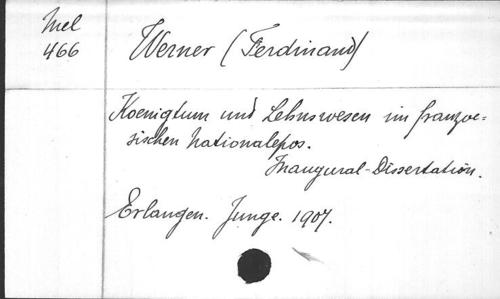 Mel
466
Werner (Ferdinand)
Koenigtum und Lehnswesen im franzoe=
sischen Nationalepos.
Inaugural-Dissertation.
Erlangen. Junge. 1907.